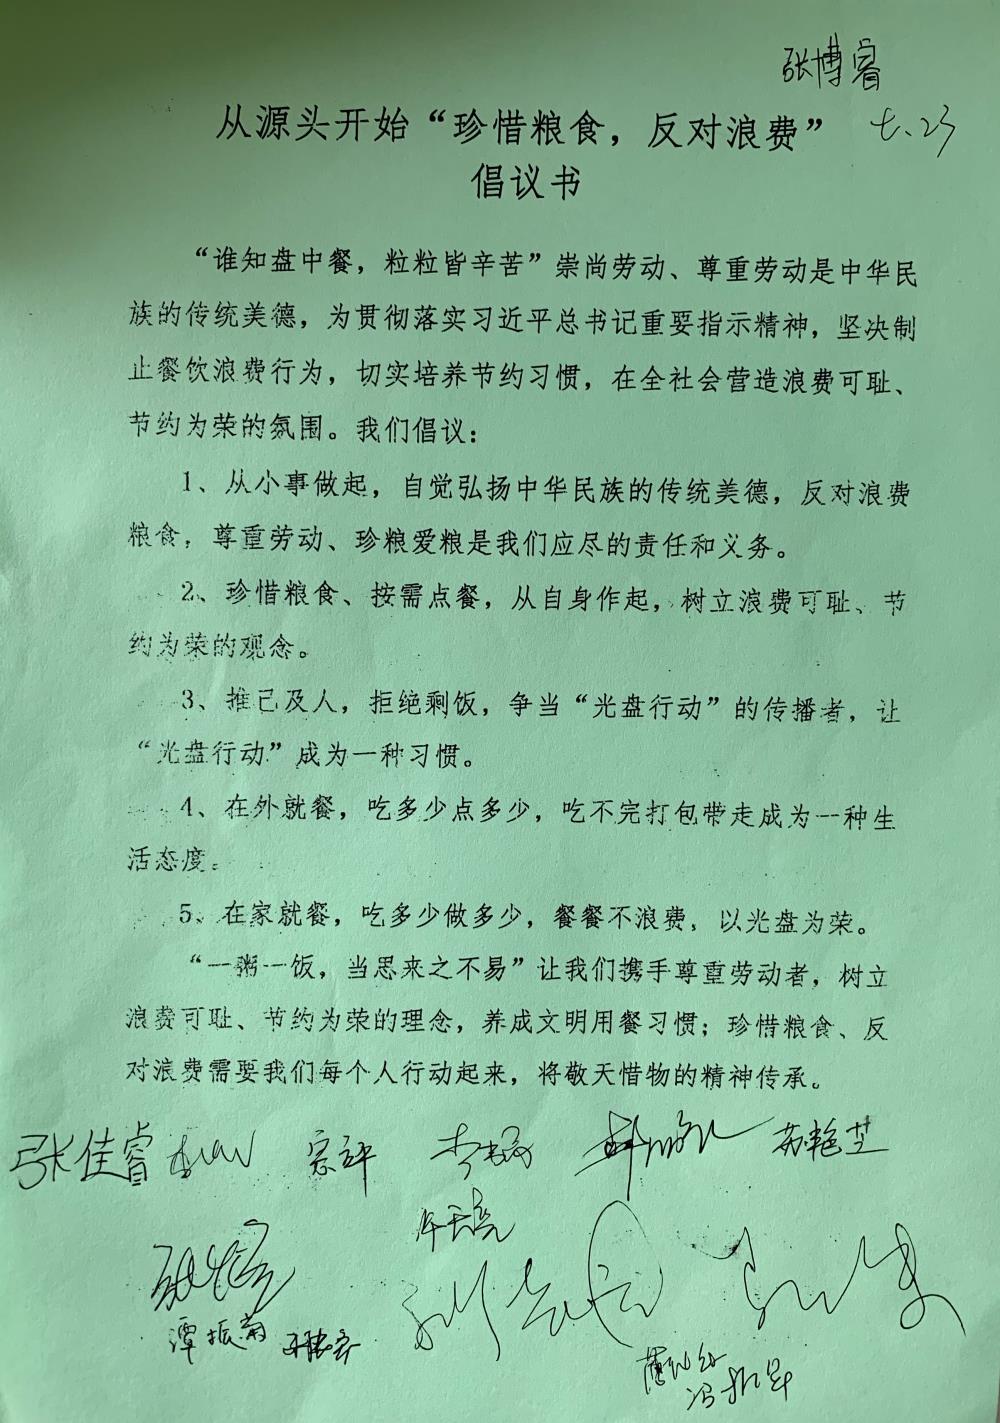 张博睿
从源头开始“珍惜粮食，反对浪费”
七.23
倡议书
“谁知盘中餐，粒粒皆辛苦”崇尚劳动、尊重劳动是中华民
族的传统美德，为贯彻落实习近平总书记重要指示精神，坚决制
止餐饮浪费行为，切实培养节约习惯，在全社会营造浪费可耻、
节约为荣的氛围。我们倡议：
1、从小事做起，自觉弘扬中华民族的传统美德，反对浪费
粮食，尊重劳动、珍粮爱粮是我们应尽的责任和义务。
2、珍惜粮食、按需点餐，从自身作起，树立浪费可耻、节
约为荣的观念。
3、推己及人，拒绝剩饭，争当“光盘行动”的传播者，让
“光盘行动”成为一种习惯。
4、在外就餐，吃多少点多少，吃不完打包带走成为一种生
活态度。
5、在家就餐，吃多少做多少，餐餐不浪费，以光盘为荣。
“一粥一饭，当思来之不易”让我们携手尊重劳动者，树立
浪费可耻、节约为荣的理念，养成文明用餐习惯；珍惜粮食、反
对浪费需要我们每个人行动起来，将敬天惜物的精神传承。
张佳睿 苏艳芝
谭振菊